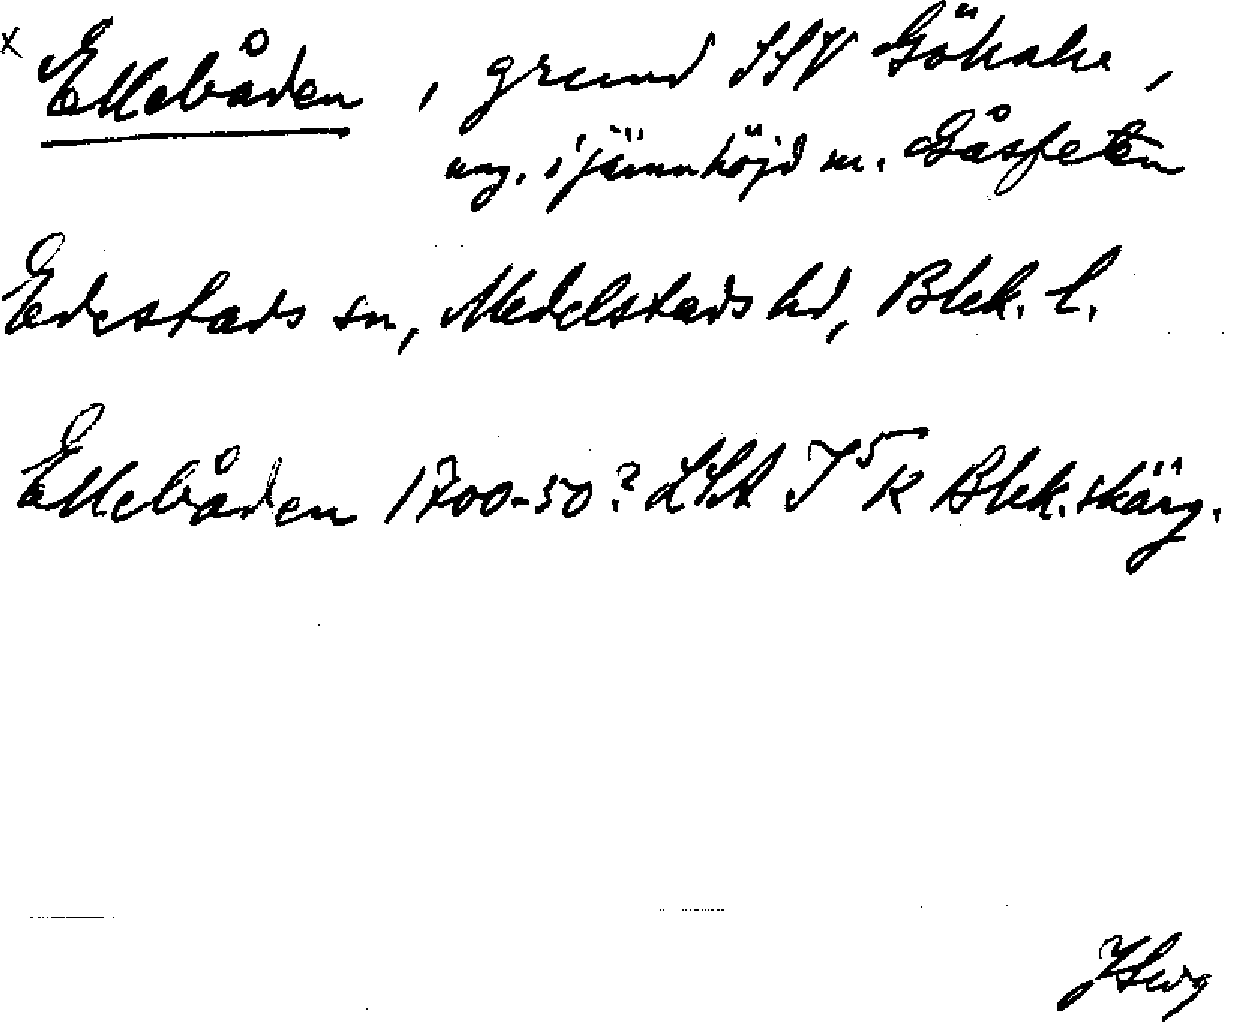 x Ellebåden, grund SSV Gökalv,
ung. i jämnhöjd m. Gåsfeten
Edestads sn, Medelstads hd, Blek. l.
Ellebåden 1700-50? LSA I 5 K Blek. skärg.